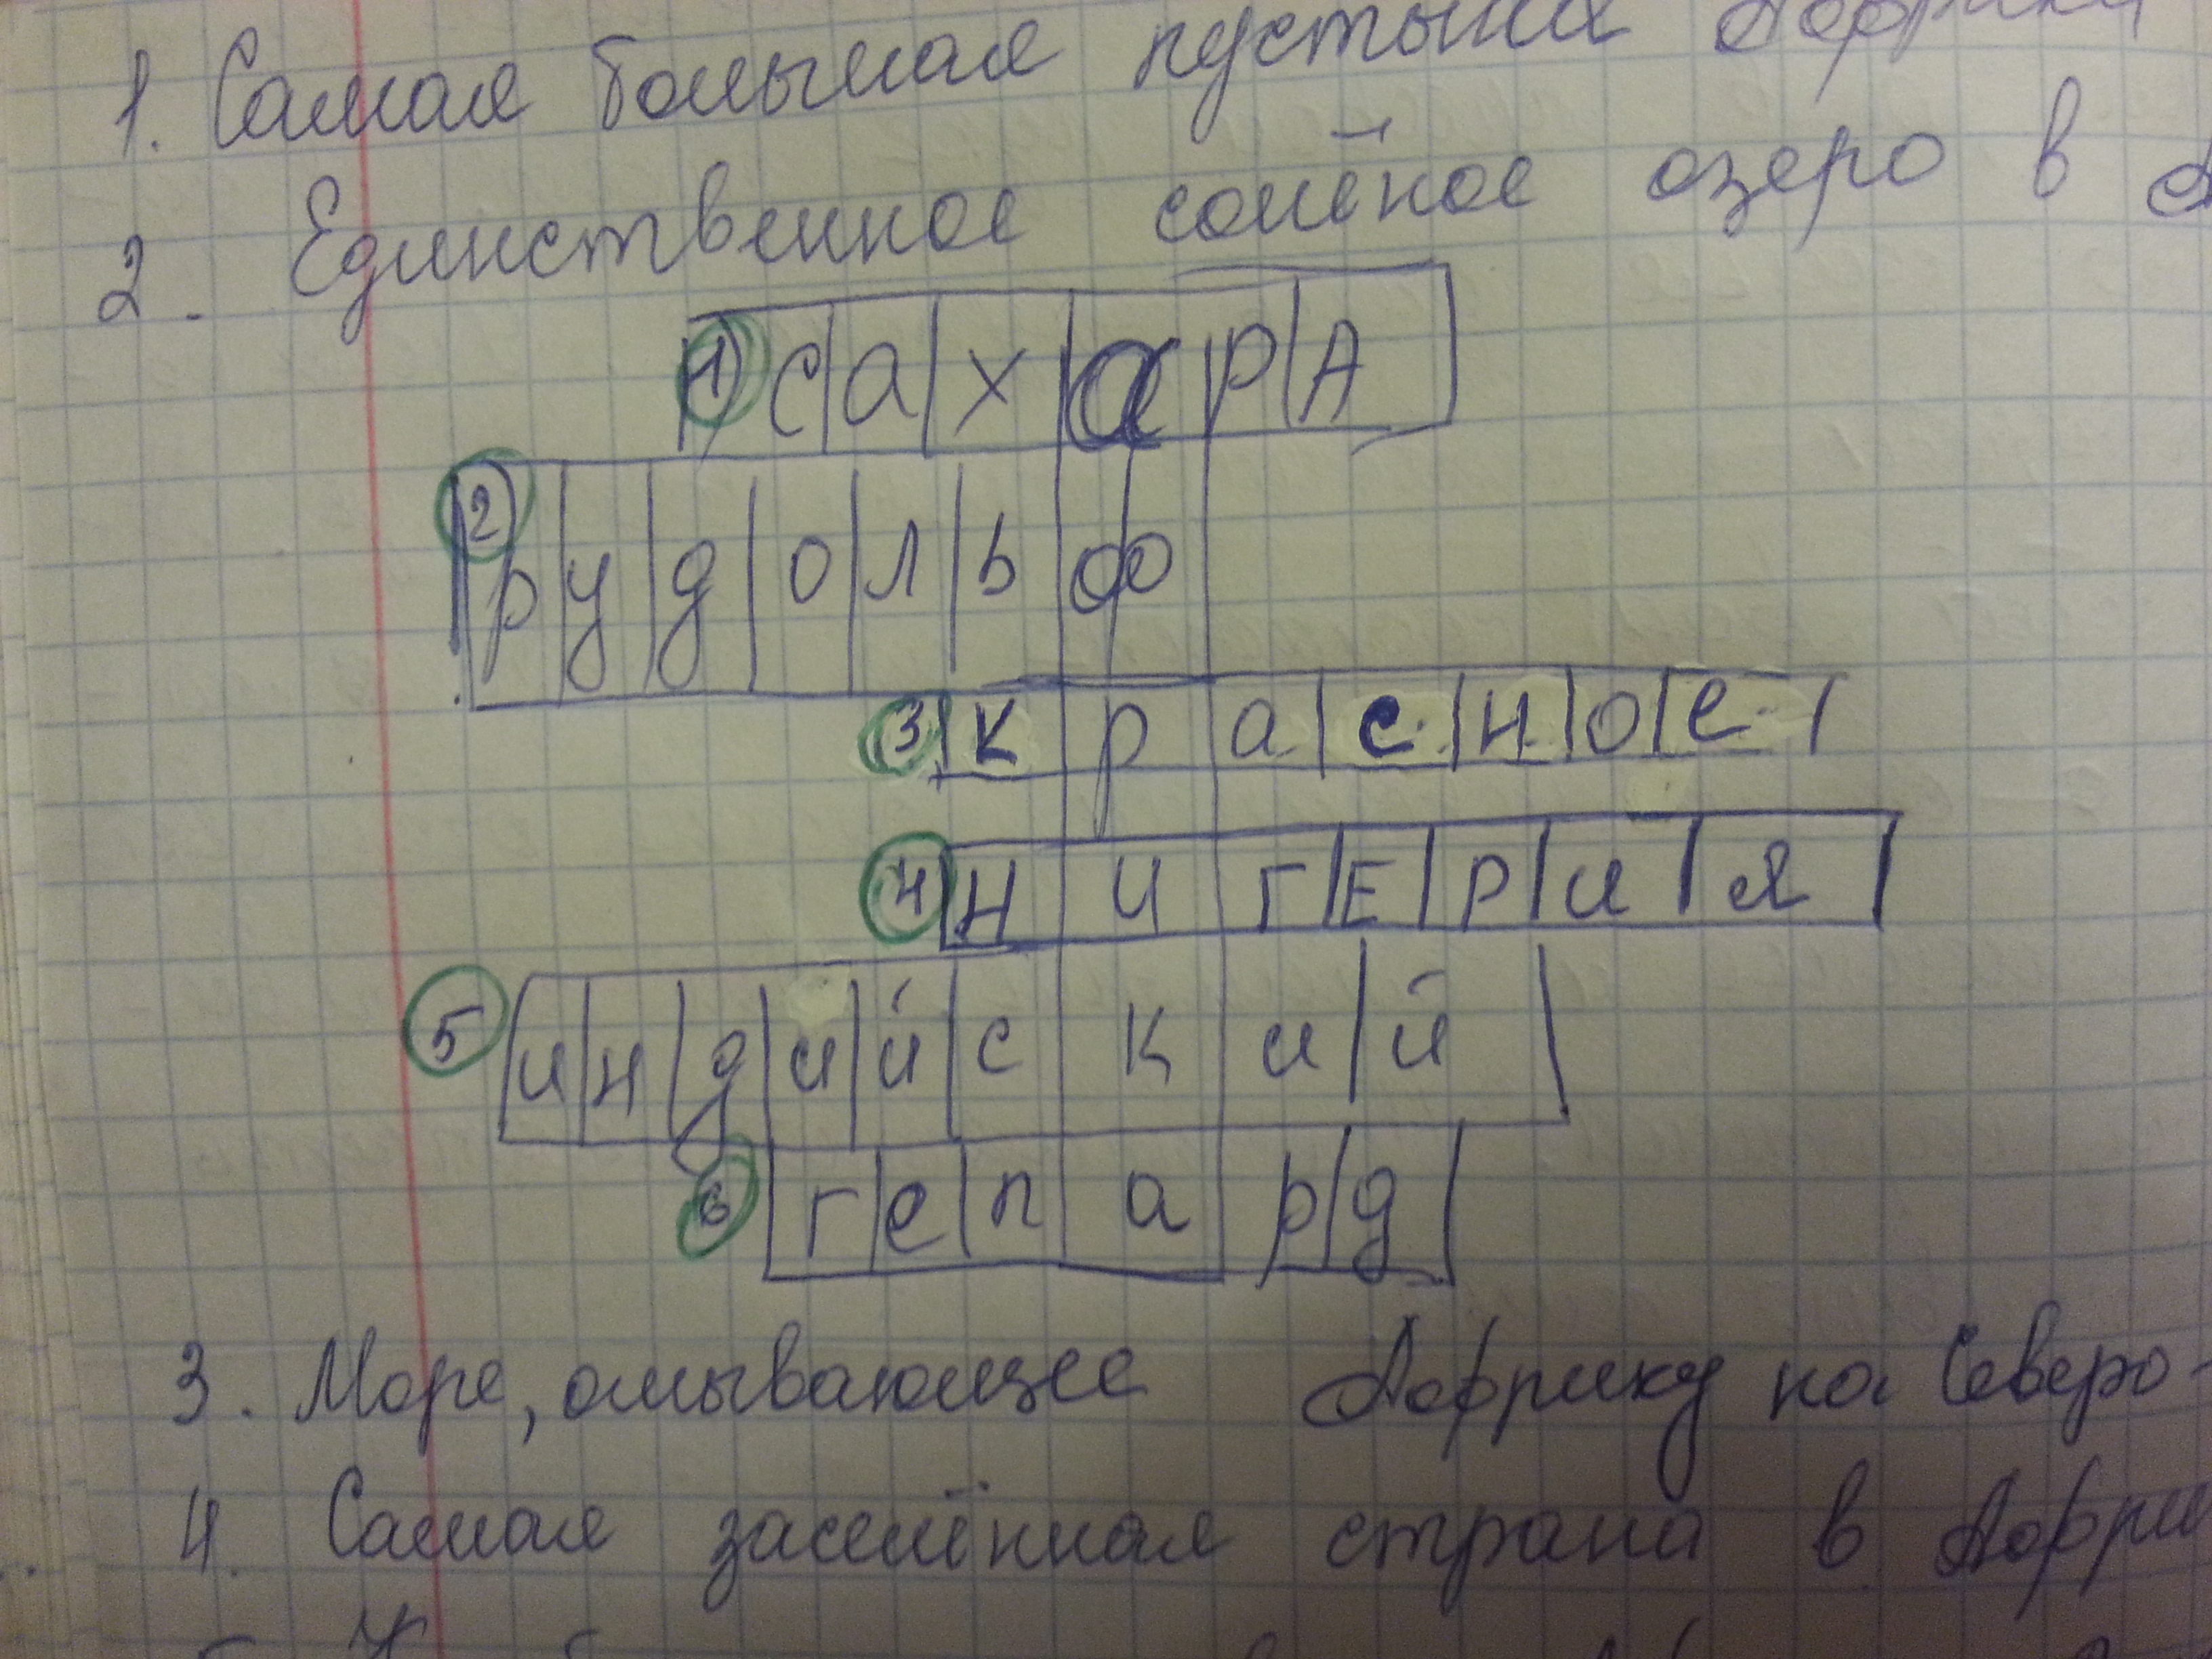 1. Самая большая пустыня Африки
2. Единственное солёное озеро в А
1 сахарА
2 рудольф
3 красное
4 нигЕрия
5 индийский
6 гепард
3. Море, омывающее Африку на Северо-
4. Самая заселённая страна в Афри